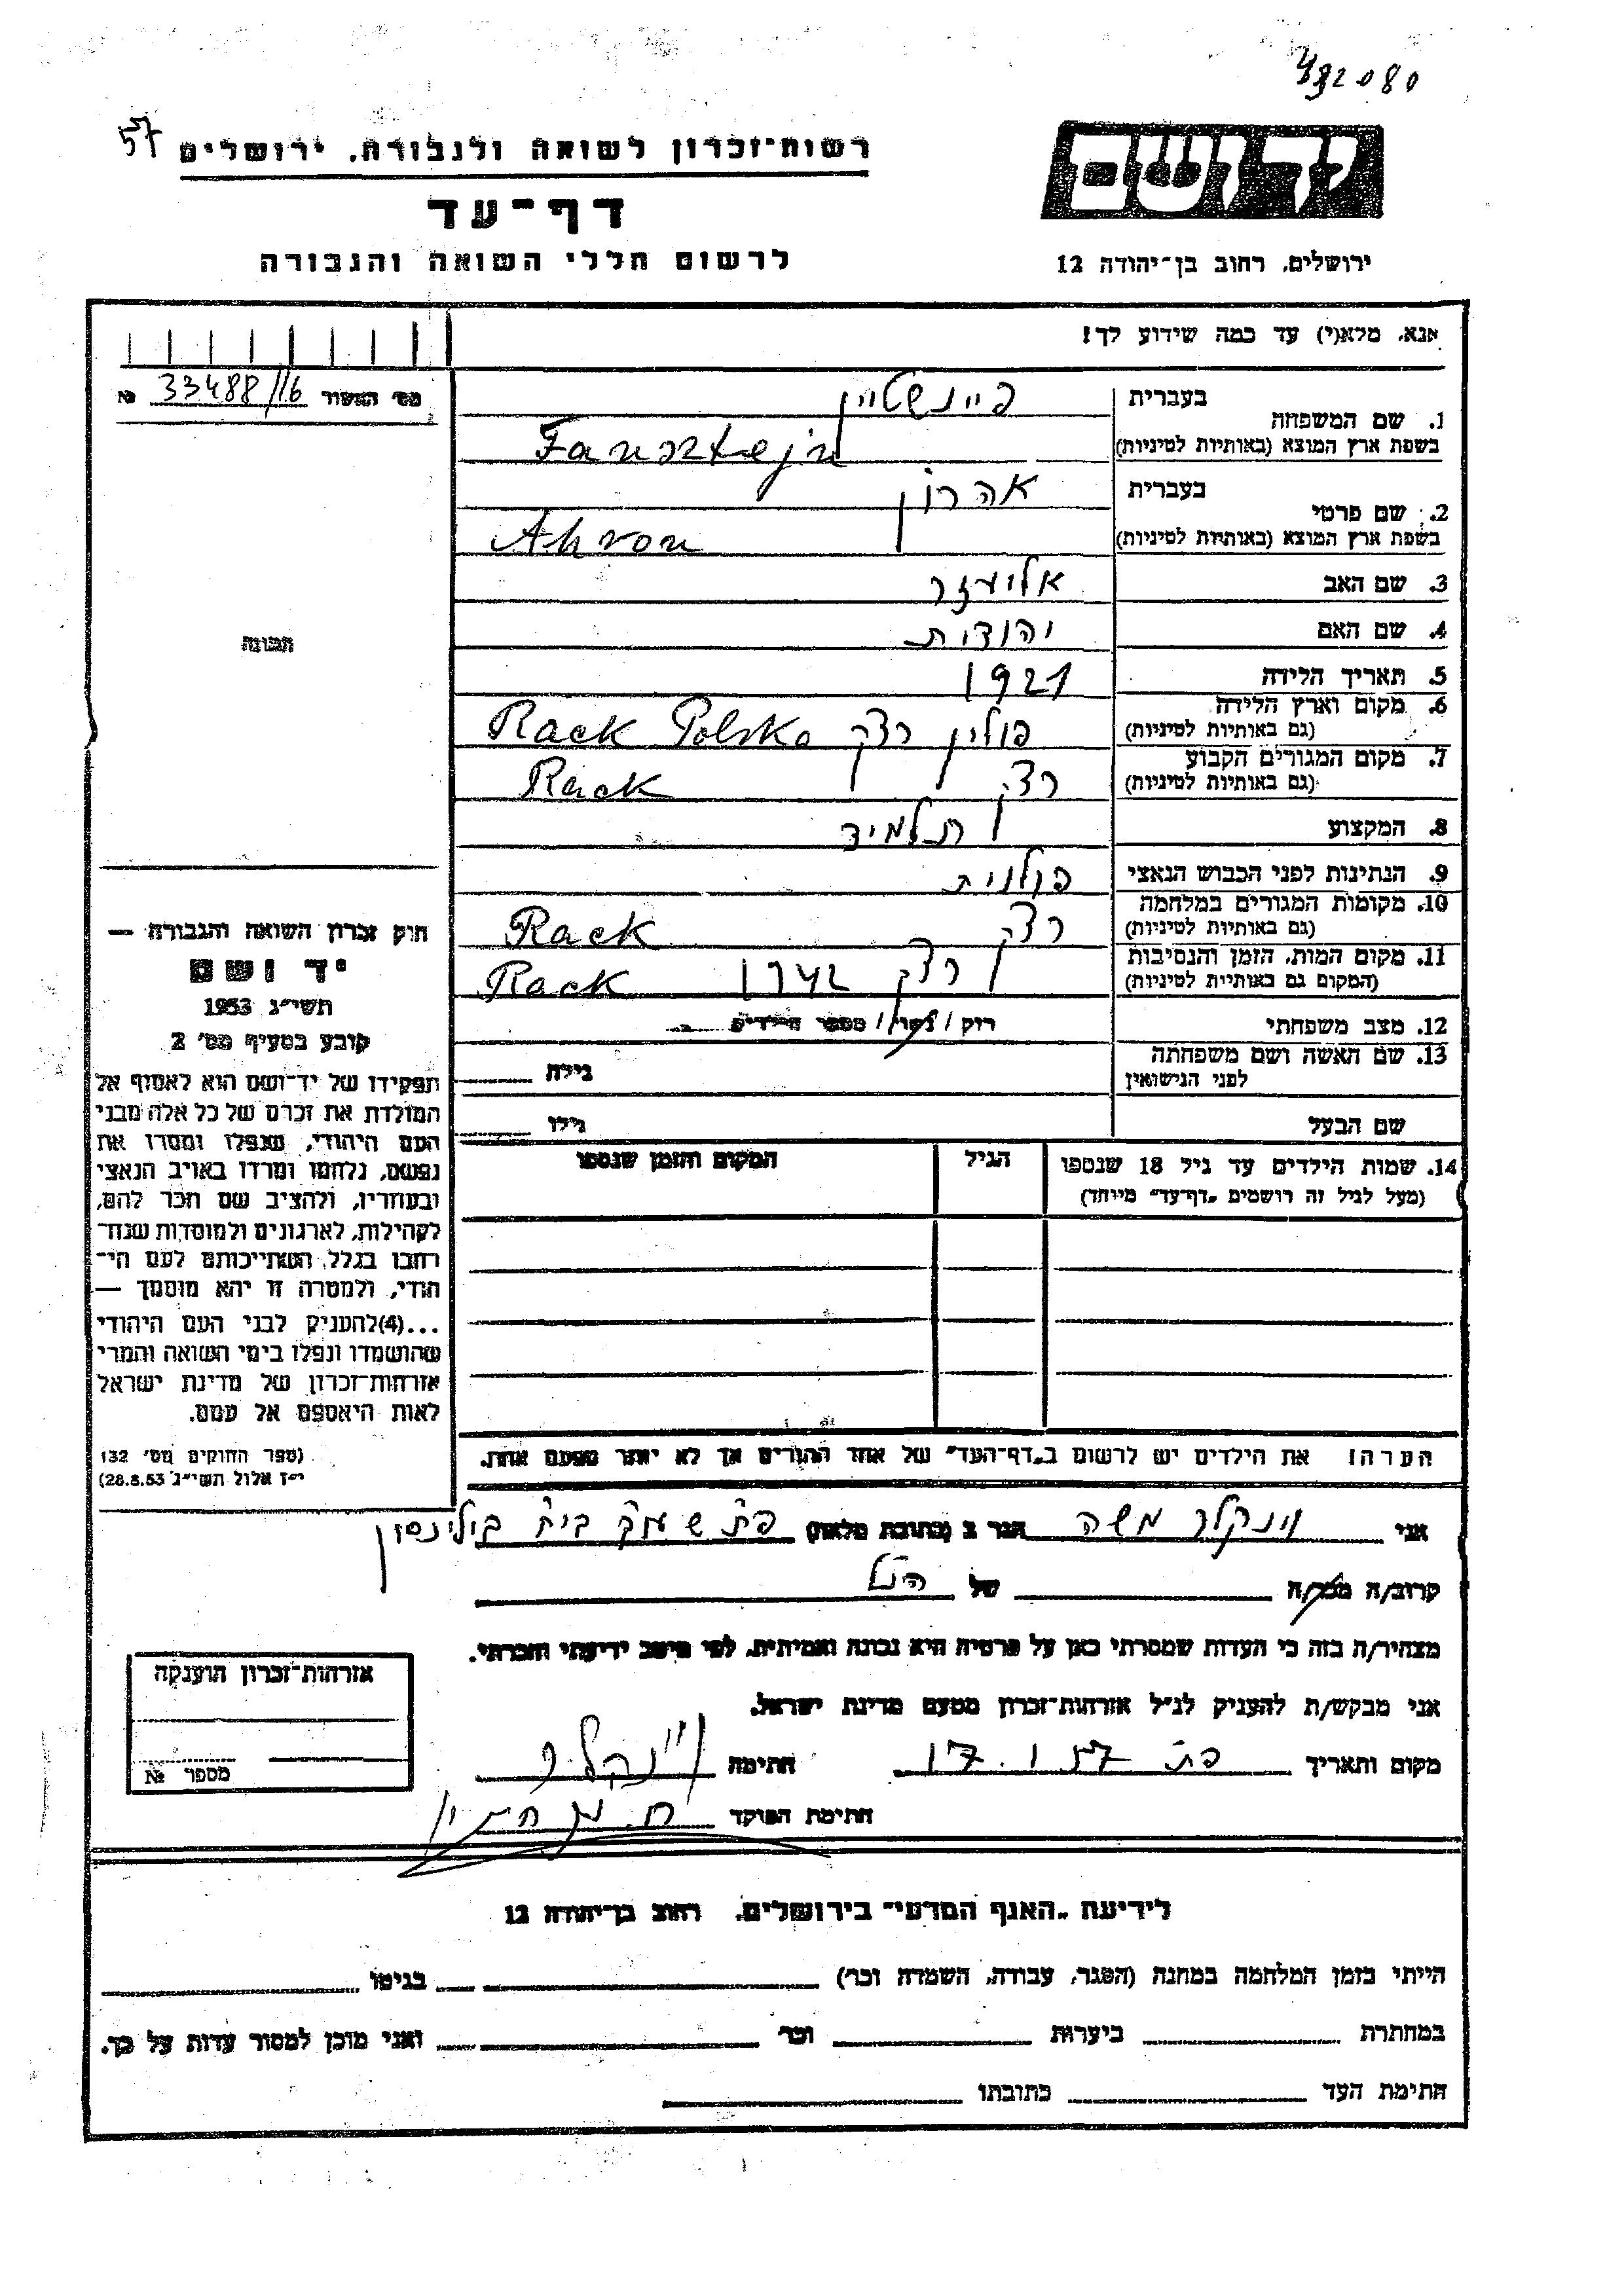 492080
57
רשות־זכרון לשואה ולגבורה, ירושלים
ידושם
דף־עד
לרשום חללי השואה והגבורה
ירושלים, רחוב בן־יהודה 12
אנא, מלא(י) עד כמה שידוע לך!
מס׳ האשור 33488/16 №
1. שם המשפחה
בעברית פיינשטיין
בשפת ארץ המוצא (באותיות לטיניות) Fansztejn
2. שם פרטי
בעברית אהרון
בשפת ארץ המוצא (באותיות לטיניות) Ahron
3. שם האב אליעזר
4. שם האם יהודית
5. תאריך הלידה 1921
6. מקום וארץ הלידה
(גם באותיות לטיניות) פולין רצק Rack Polska
7. מקום המגורים הקבוע
(גם באותיות לטיניות) רצק Rack
8. המקצוע תלמיד
9. הנתינות לפני הכבוש הנאצי פולנית
10. מקומות המגורים במלחמה
(גם באותיות לטיניות) רצק Rack
11. מקום המות, הזמן והנסיבות
(המקום גם באותיות לטיניות) רצק 1942 Rack
12. מצב משפחתי רוק / נשוי / מספר הילדים
13. שם האשה ושם משפחתה
לפני הנישואין גילה
שם הבעל גילו
14. שמות הילדים עד גיל 18 שנספו
(מעל לגיל זה רושמים „דף־עד״ מיוחד)
הגיל
המקום והזמן שנספו
הערה: את הילדים יש לרשום ב„דף־העד״ של אחד ההורים אך לא יותר מפעם אחת.
תמונה
חוק זכרון השואה והגבורה —
יד ושם
תשי״ג 1953
קובע בסעיף מס׳ 2
תפקידו של יד־ושם הוא לאסוף אל
המולדת את זכרם של כל אלה מבני
העם היהודי, שנפלו ומסרו את
נפשם, נלחמו ומרדו באויב הנאצי
ובעוזריו, ולהציב שם וזכר להם,
לקהילות, לארגונים ולמוסדות שנח־
רבו בגלל השתייכותם לעם הי־
הודי, ולמטרה זו יהא מוסמך —
...(4)להעניק לבני העם היהודי
שהושמדו ונפלו בימי השואה והמרי
אזרחות־זכרון של מדינת ישראל
לאות היאספם אל עמם.
(ספר החוקים מס׳ 132
י״ז אלול תשי״ג 28.8.53)
אני וינקלר משה הגר ב (כתובת מלאה) פת בית בילינסון
קרוב/ה מכר/ה של הנ״ל
מצהיר/ה בזה כי העדות שמסרתי כאן על פרטיה היא נכונה ואמיתית, לפי מיטב ידיעתי והכרתי.
אני מבקש/ת להעניק לנ״ל אזרחות־זכרון מטעם מדינת ישראל.
מקום ותאריך פת 17.1.57 חתימה וינקלר
חתימת הפוקד
אזרחות־זכרון הוענקה
מספר №
לידיעת „האגף המדעי״ בירושלים, רחוב בן־יהודה 12
הייתי בזמן המלחמה במחנה (הסגר, עבודה, השמדה וכו׳) בגיטו
במחתרת ביערות וכו׳ ואני מוכן למסור עדות על כך.
חתימת העד כתובתו